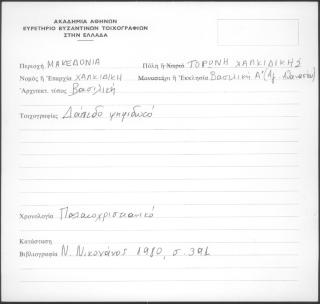 ΑΚΑΔΗΜΙΑ ΑΘΗΝΩΝ
ΕΥΡΕΤΗΡΙΟ ΒΥΖΑΝΤΙΝΩΝ ΤΟΙΧΟΓΡΑΦΙΩΝ
ΣΤΗΝ ΕΛΛΑΔΑ
Περιοχή ΜΑΚΕΔΟΝΙΑ Πόλη ἢ Χωριό ΤΟΡΩΝΗ ΧΑΛΚΙΔΙΚΗΣ
Νομός ἢ Ἐπαρχία ΧΑΛΚΙΔΙΚΗ Μοναστήρι ἢ Ἐκκλησία Βασιλική Α' (Αγ. Αθανασίου)
Ἀρχιτεκτ. τύπος Βασιλική
Τοιχογραφίες Δάπεδο ψηφιδωτό
Χρονολογία Παλαιοχριστιανικό
Κατάσταση
Βιβλιογραφία Ν. Νικονάνος 1980, σ. 391